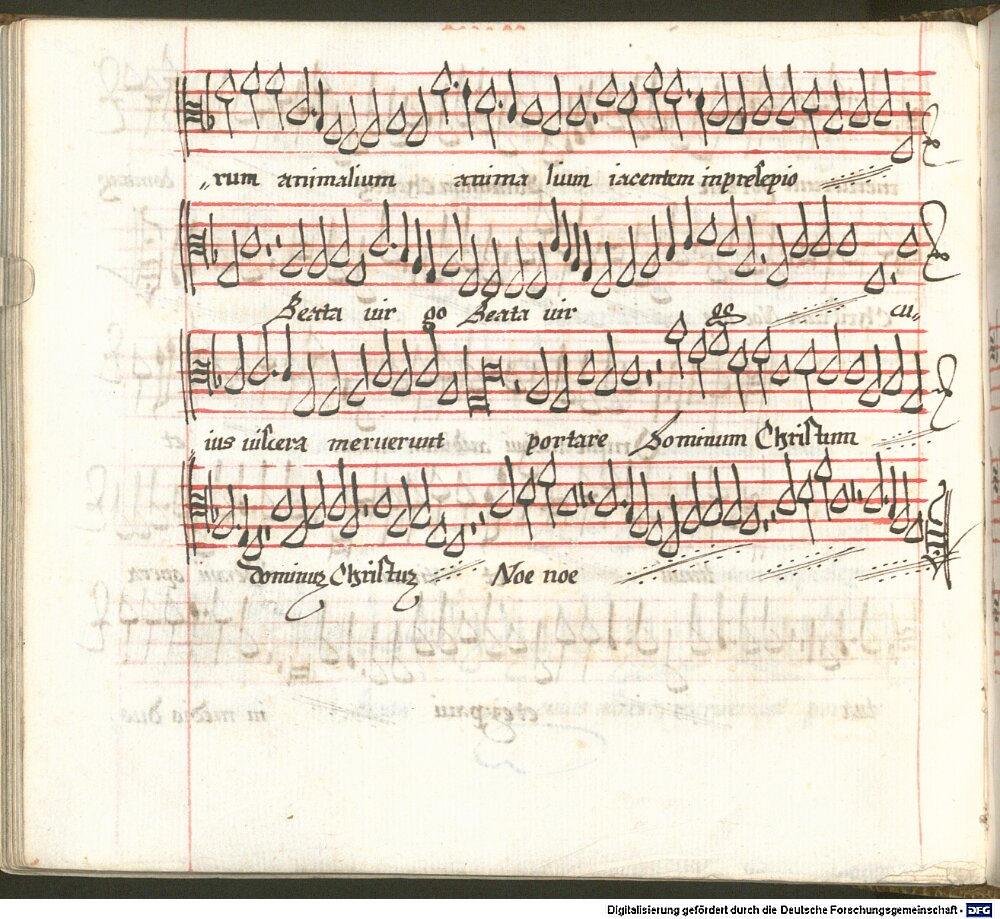 „rum animalium anima lium iacentem in presepio
Beata uir go Beata uir go cu„
ius uiscera meruerunt portare Dominum Christum
dominuʒ Christuʒ Noe noe
Digitalisierung gefördert durch die Deutsche Forschungsgemeinschaft - DFG